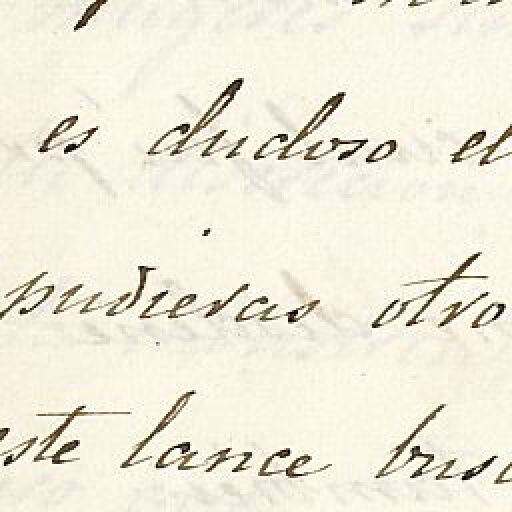 es dudoso el
pudieras otro
este lance busc